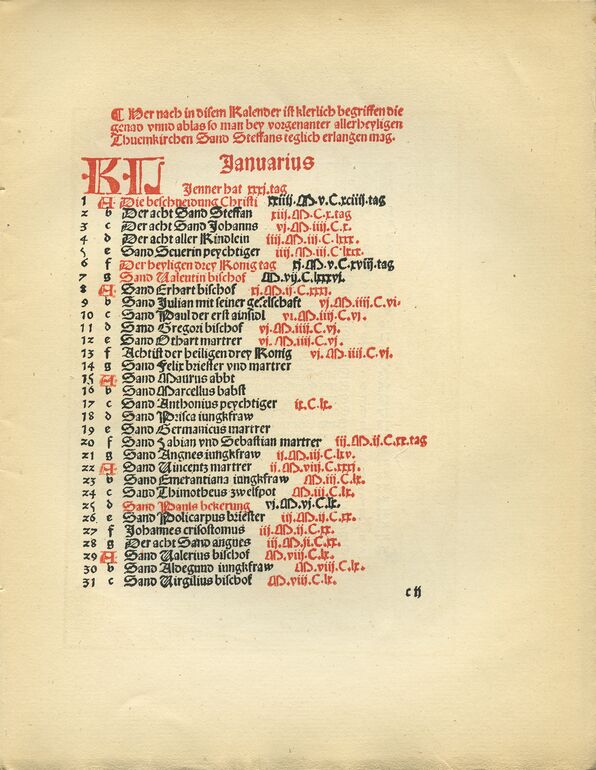 ¶ Der nach in disem Kalender ist klerlich begriffen die
genad vnnd ablas so man bey vorgenanter allerheyligen
Thuemkirchen Sand Steffans teglich erlangen mag.
KL Januarius
Jenner hat xxxj.tag
1 A Die beschneidung Christi xxiiij.M.v.C.xciij.tag
2 b Der acht Sand Steffan xiij.M.C.x.tag
3 c Der acht Sand Johanns vj.M.iiij.C.x.
4 d Der acht aller Kindlein iiij.M.iij.C.lxxx.
5 e Sand Seuerin peychtiger iiij.M.iij.C.lxxx.
6 f Der heyligen drey Konig tag xj.M.v.C.xviij.tag
7 g Sand Valentin bischof M.vij.C.lxxxvj.
8 A Sand Erhart bischof xj.M.ij.C.xxxj.
9 b Sand Julian mit seiner geselschaft vj.M.iiij.C.vj.
10 c Sand Paul der erst ainsidl vj.M.iiij.C.vj.
11 d Sand Gregori bischof vj.M.iiij.C.vj.
12 e Sand Othart martrer vj.M.iiij.C.vj.
13 f Achtist der heiligen drey Konig vj.M.iiij.C.vj.
14 g Sand Felix briester vnd martrer
15 A Sand Maurus abbt
16 b Sand Marcellus babst
17 c Sand Anthonius peychtiger ix.C.lx.
18 d Sand Prisca iungkfraw
19 e Sand Germanicus martrer
20 f Sand Fabian vnd Sebastian martrer iij.M.ij.C.xx.tag
21 g Sand Angnes iungkfraw ij.M.iij.C.lxv.
22 A Sand Vincentz martrer ij.M.viij.C.xxxj.
23 b Sand Emerantiana iungkfraw M.iij.C.lx.
24 c Sand Thimotheus zwelfpot M.iij.C.lx.
25 d Sand Pauls bekerung vj.M.vj.C.lx.
26 e Sand Policarpus briester iij.M.ij.C.xx.
27 f Johannes crisostomus iij.M.ij.C.xx.
28 g Der acht Sand angnes iij.M.ij.C.xx.
29 A Sand Valerius bischof M.viij.C.lx.
30 b Sand Aldegund iungkfraw M.viij.C.lx.
31 c Sand Virgilius bischof M.viij.C.lx.
c ij